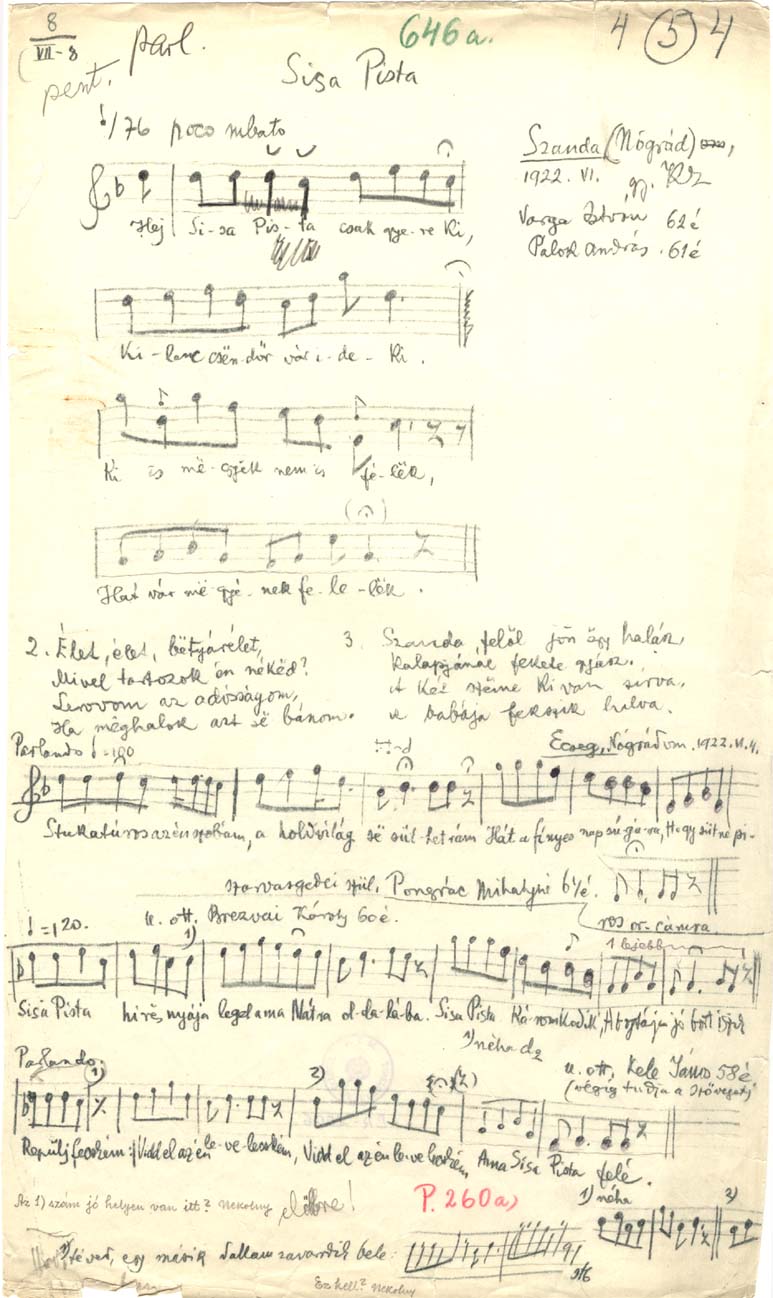 8
VII-8
pent.
parl.
646a.
4 5 4
Sisa Pista
76 poco rubato
Szanda (Nógrád),
1922. VI.
Varga István 62é
Palok András. 61é
Hej Si-sa Pis-ta csak gye-re ki,
Ki-lenc csën-dőr vár i-de-ki.
Ki is më-gyëk nem is fé-lëk,
Hat vár-më-gyé-nek fe-le-lëk.
2. Élet, élet, bëtyárélet,
Mivel tartozok én nékëd?
Lerovom az adósságom,
Ha mëghalok azt së bánom.
3. Szanda felől jön ëgy halász,
Kalapjánál fekete gyász.
A két szëme ki van sírva,
A babája fekszik halva.
Parlando
Ecseg, Nógrád vm. 1922. VI. 4.
Stukatúros az én szobám, a holdvilág së süt-het rám Hát a fényes nap sú-gá-ra, Hogy sütne be
szarvasgedei szül. Pongrác Mihályné 61é.
rozs-cámra.
♩=120.
u. ott. Brezvai Károly 60é.
1)
1 lejebb
Sisa Pista híres nyája legel ama Mátra ol-da-lá-ba. Sisa Pista Káromkodik, A bojtárja jó bort iszik
1) néha d2
Parlando.
1)
2)
u. ott. Kele János 58é
(végig tudja a szöveget)
Repülj fecském :| Vidd el az én le-ve-lecském, Vidd el az én le-ve-lecském, Ama Sisa Pista felé.
Az 1) szám jó helyen van itt? Nekolny
előbbre!
P. 260a)
1) néha
3)
téved, egy másik dallam zavarodik bele:
9/6
Ez kell? Nekolny